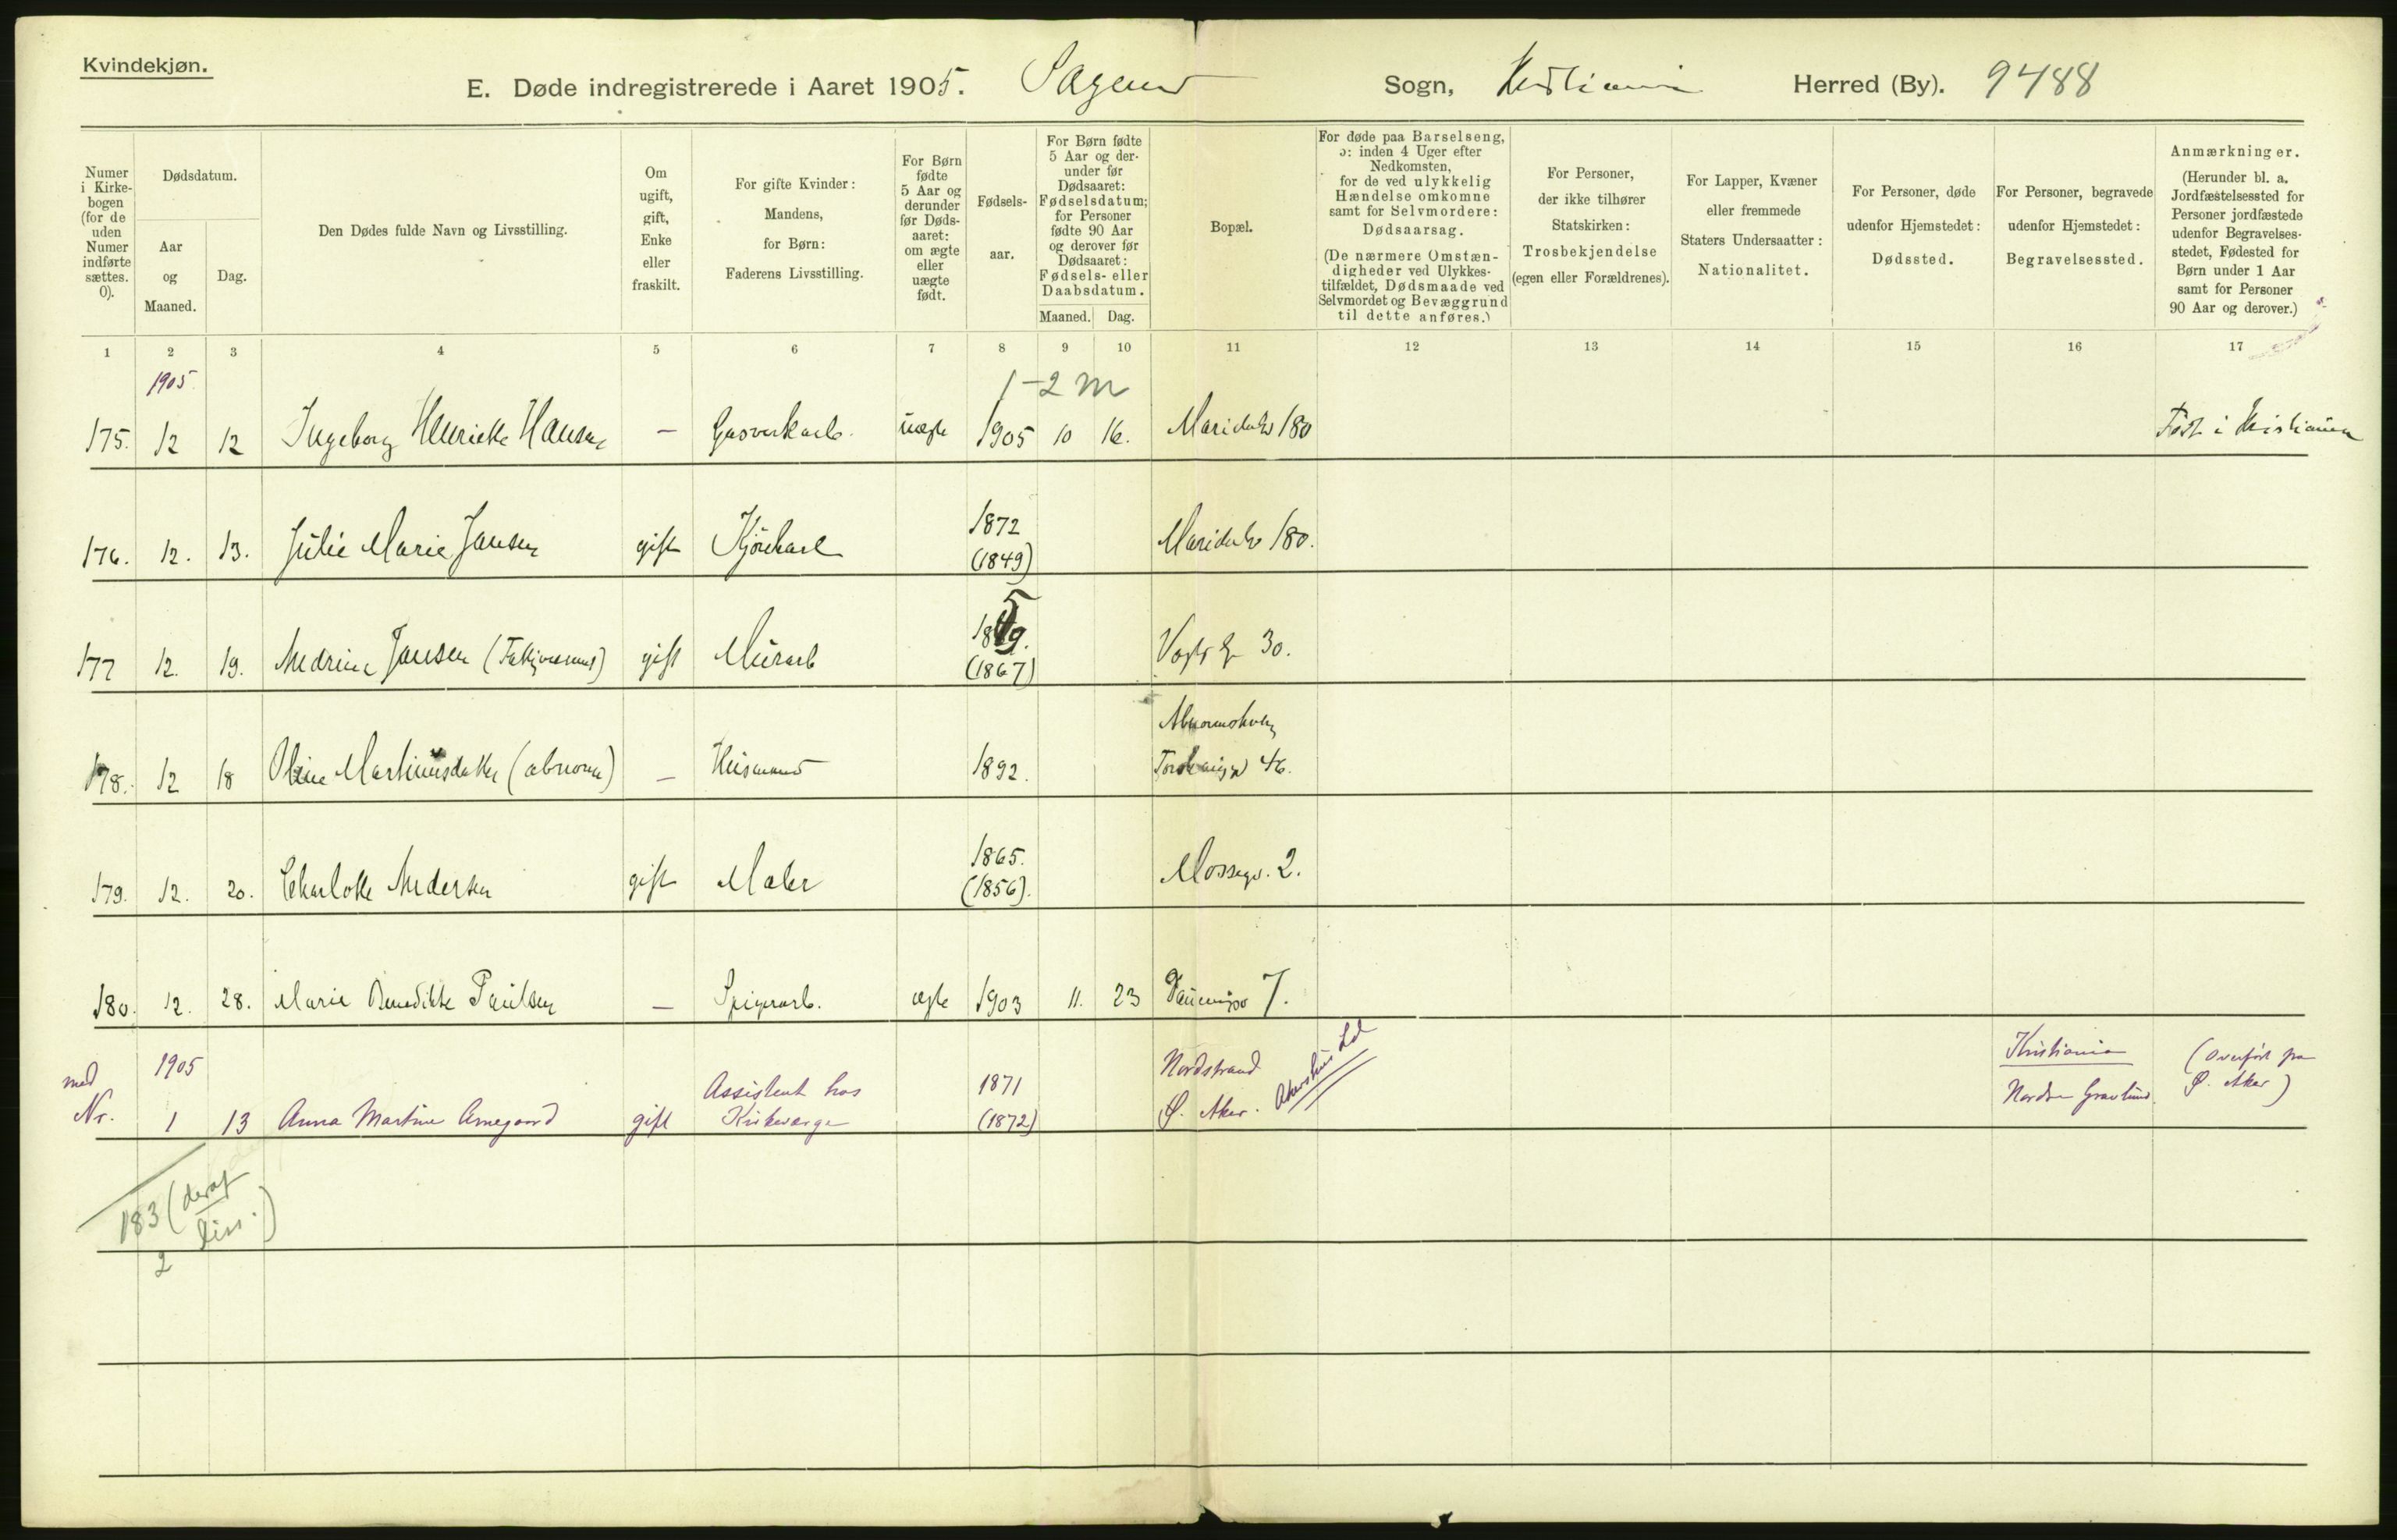 Kvindekjøn.
E. Døde indregistrerede i Aaret 1905. Sagene Sogn, Kristiania Herred (By). 9488
Numer i Kirke-bogen (for de uden Numer indførte sættes. 0).
Dødsdatum.
Aar og Maaned.
Dag.
Den Dødes fulde Navn og Livsstilling.
Om ugift, gift, Enke eller fraskilt.
For gifte Kvinder: Mandens, for Børn: Faderens Livsstilling.
For Børn fødte 5 Aar og derunder før Døds-aaret: om ægte eller uægte født.
Fødsels-aar.
For Børn fødte 5 Aar og der-under før Dødsaaret: Fødselsdatum; for Personer fødte 90 Aar og derover før Dødsaaret: Fødsels- eller Daabsdatum.
Maaned. Dag.
Bopæl.
For døde paa Barselseng, ɔ: inden 4 Uger efter Nedkomsten, for de ved ulykkelig Hændelse omkomne samt for Selvmordere: Dødsaarsag.
(De nærmere Omstæn-digheder ved Ulykkes-tilfældet, Dødsmaade ved Selvmordet og Bevæggrund til dette anføres.)
For Personer, der ikke tilhører Statskirken: Trosbekjendelse (egen eller Forældrenes).
For Lapper, Kvæner eller fremmede Staters Undersaatter: Nationalitet.
For Personer, døde udenfor Hjemstedet: Dødssted.
For Personer, begravede udenfor Hjemstedet: Begravelsessted.
Anmærkninger.
(Herunder bl. a. Jordfæstelsessted for Personer jordfæstede udenfor Begravelses-stedet, Fødested for Børn under 1 Aar samt for Personer 90 Aar og derover.)
1 2 3 4 5 6 7 8 9 10 11 12 13 14 15 16 17
1905. 1-2 m
175. 12 12 Ingeborg Henriette Hansen – Gasverkarb. uægte 1905 10 16. Maridalsv 180 Født i Kristiania
176. 12. 13. Julie Marie Jansen gift Kjørekarl 1872 (1849) Maridalsv 180.
177 12. 19. Andrine Jansen gift Murarb (1867) Vogts g 30.
178. 12 18 Oline Martinusdatter (abnorm) – Husmand 1892. 46.
179. 12. 20. Charlotte Andersen gift Maler 1865. (1856). Mossegd. 2.
180. 12. 28. Marie Benedikte Paulsen – Spigerarb. ægte 1903 11. 23 7.
med Nr. 1905 1 13 Anna Martine Arnegaard gift Assistent hos Kirkeverge 1871 (1872) Nordstrand Ø. Aker. Akershus Kristiania Nordre Gravlund (Overført fra Ø. Aker)
183 (deraf 2 diss.)